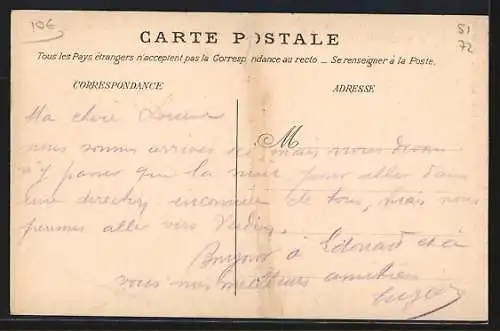 10€
51
72
CARTE POSTALE
Tous les Pays étrangers n'acceptent pas la Correspondance au recto. — Se renseigner à la Poste.
CORRESPONDANCE
ADRESSE
M
Ma chère
nous sommes arrivés ici mais nous
n'y passer que la nuit pour aller dans
une direction inconnue de tous, mais nous
aller vers
Bonjour à Edouard et à
vous nos meilleurs amitiés